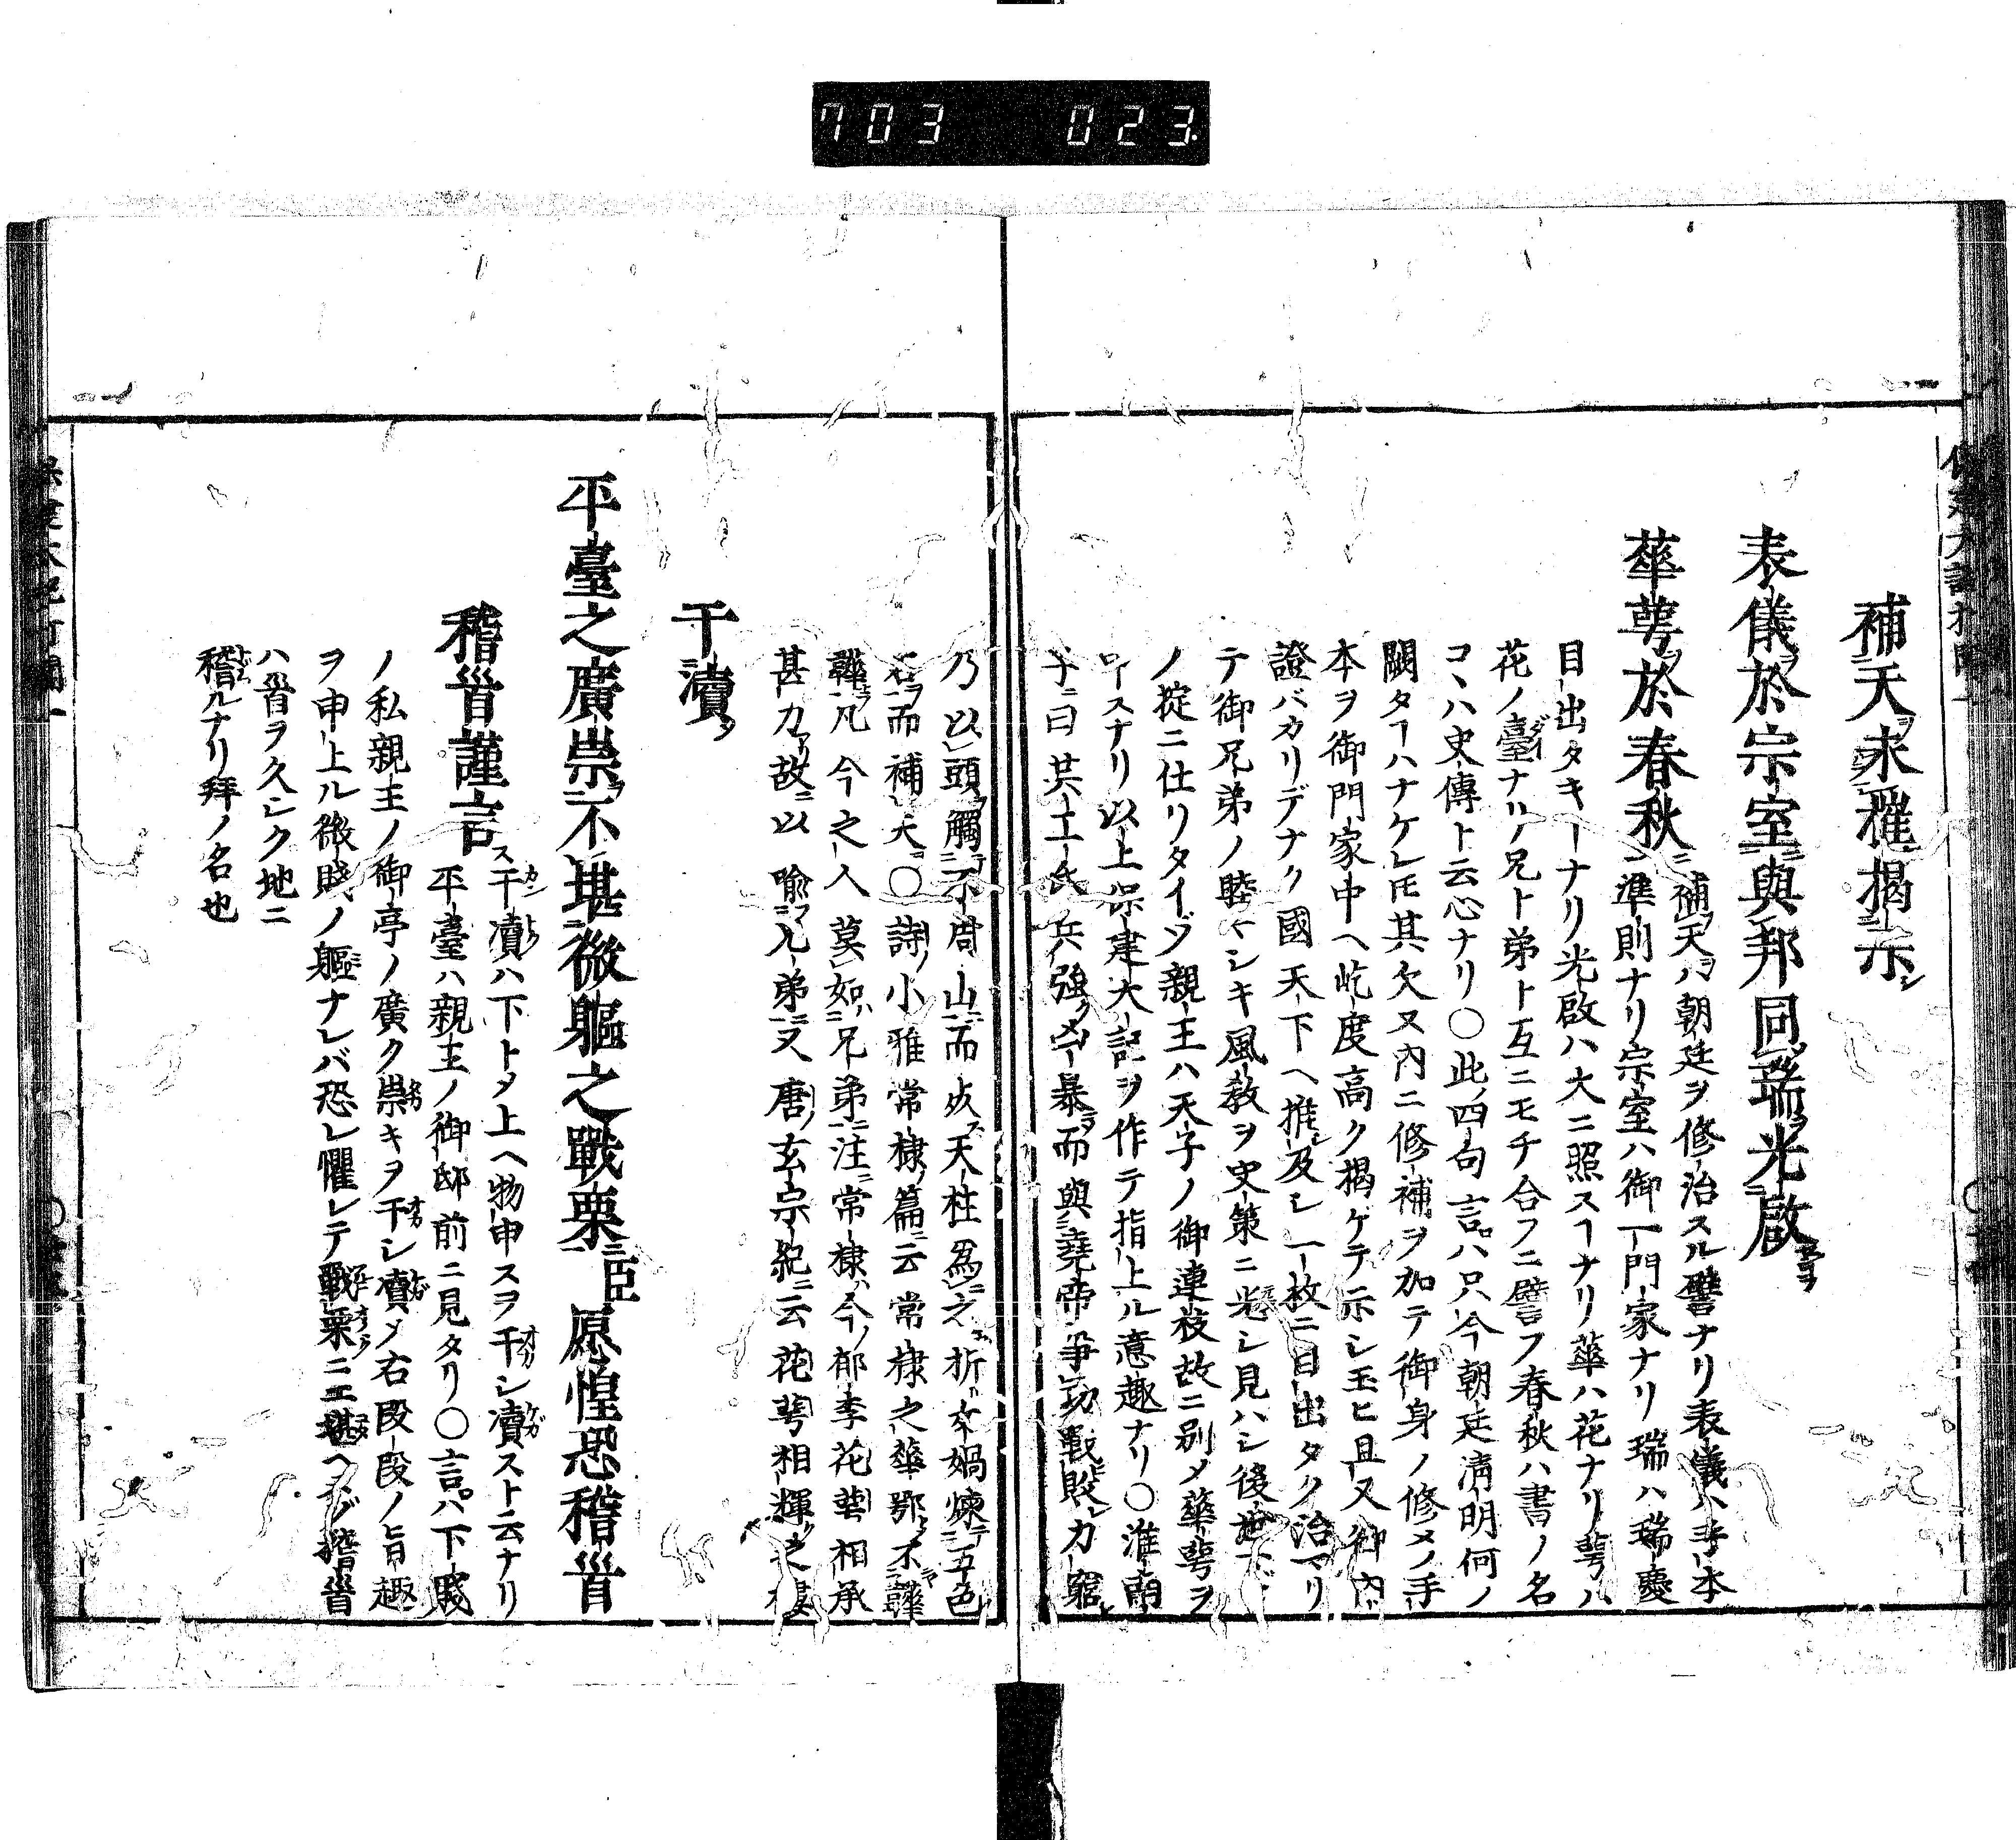 703 023
補天永罹揭示
表儀於宗室與邦同瑞光啟
華萼於春秋
補天ハ朝廷ヲ修治スル譬ナリ表儀ハ手本
準則ナリ宗室ハ御一門家ナリ瑞ハ瑞慶
目出タキヿナリ光啟ハ大ニ照スヿナリ華ハ花ナリ萼ハ
花ノ臺ナリ兄ト弟ト互ニモチ合フニ譬フ春秋ハ書ノ名
コヽハ史傳ト云心ナリ〇此四句言ハ只今朝廷淸明何ノ
闕タヿハナケレ𪜈其欠又內ニ修補ヲ加テ御身ノ修メノ手
本ヲ御門家中ヘ屹度高ク揭ゲテ示シ玉ヒ且又御內
證バカリデナク國天下ヘ推及シ一枚ニ目出タク治マリ
テ御兄弟ノ睦マシキ風敎ヲ史策ニ光シ見ハシ後世
ノ掟ニ仕リタイゾ親王ハ天子ノ御連枝故ニ別メ華萼ヲ
ヿスナリ以上保建大記ヲ作テ指上ル意趣ナリ〇淮南
子ニ曰共工氏兵強メ凶暴而與堯帝爭功戰敗力窮
乃以頭觸不周山而死天柱爲之折女媧煉五色
石而補天〇詩小雅常棣篇云常棣之華鄂不韡
韡凡今之人莫如兄弟注常棣ハ今ノ郁李花萼相承
甚力故以喩兄弟又唐玄宗紀云花萼相輝之樓
干瀆
平臺之廣崇不堪微軀之戰栗臣愿惶恐稽首
稽首謹言
干瀆ハ下トメ上ヘ物申スヲ干シ瀆スト云ナリ
平臺ハ親王ノ御邸前ニ見タリ〇言ハ下賤
ノ私親王ノ御亭ノ廣ク崇キヲ干シ瀆メ右段段ノ旨趣
ヲ申上ル微賤ノ軀ナレバ恐レ懼レテ戰栗ニエ堪ヘズゾ稽首
ハ首ヲ久シク地ニ
稽ルナリ拜ノ名也